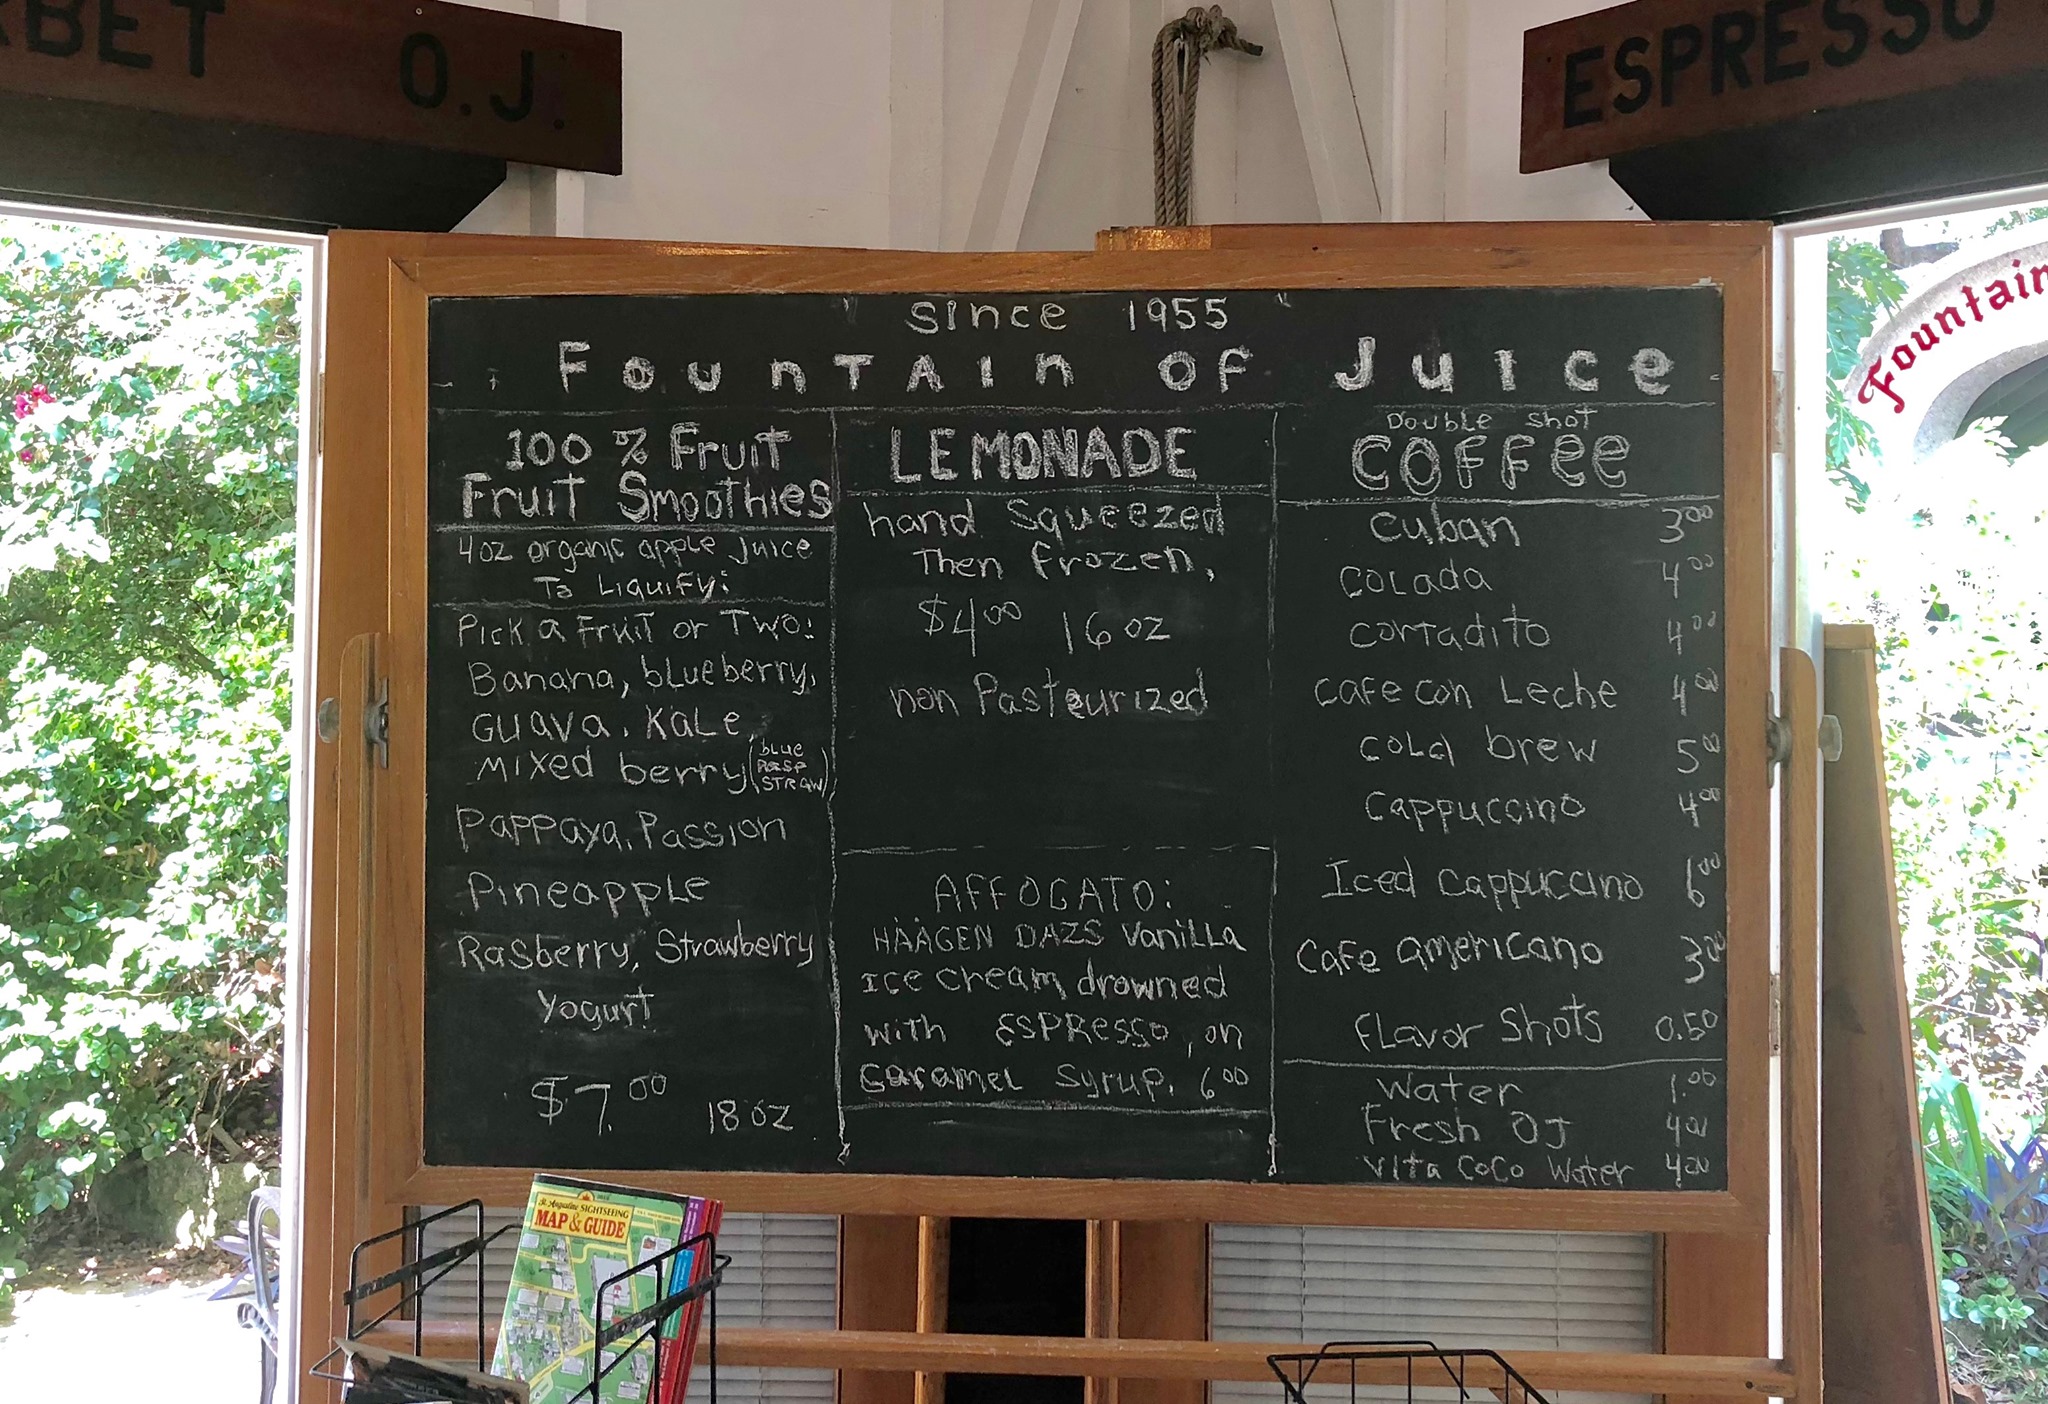 O.J.
ESPRESSO
Fountain
" Since 1955 "
FOUNTAIN OF JUICE
100 % Fruit
Fruit Smoothies
4oz organic apple juice
To Liquify:
Pick a Fruit or Two:
Banana, blueberry,
Guava, Kale,
Mixed berry (blue
Rasp
STRAW)
Pappaya, Passion
Pineapple
Rasberry, Strawberry
Yogurt
$7.00 18 oz
LEMONADE
hand Squeezed
Then frozen,
$4.00 16 oz
non Pasteurized
AFFOGATO:
HÄÄGEN DAZS Vanilla
Ice cream, drowned
with ESPRESSO, on
Caramel Syrup. 6.00
Double Shot
COFFEE
Cuban 3.00
Colada 4.00
Cortadito 4.00
Cafe con Leche 4.00
Cold brew 5.00
Cappuccino 4.00
Iced Cappuccino 6.00
Cafe americano 3.00
Flavor Shots 0.50
Water 1.00
Fresh OJ 4.00
Vita Coco Water 4.00
St. Augustine SIGHTSEEING
MAP & GUIDE